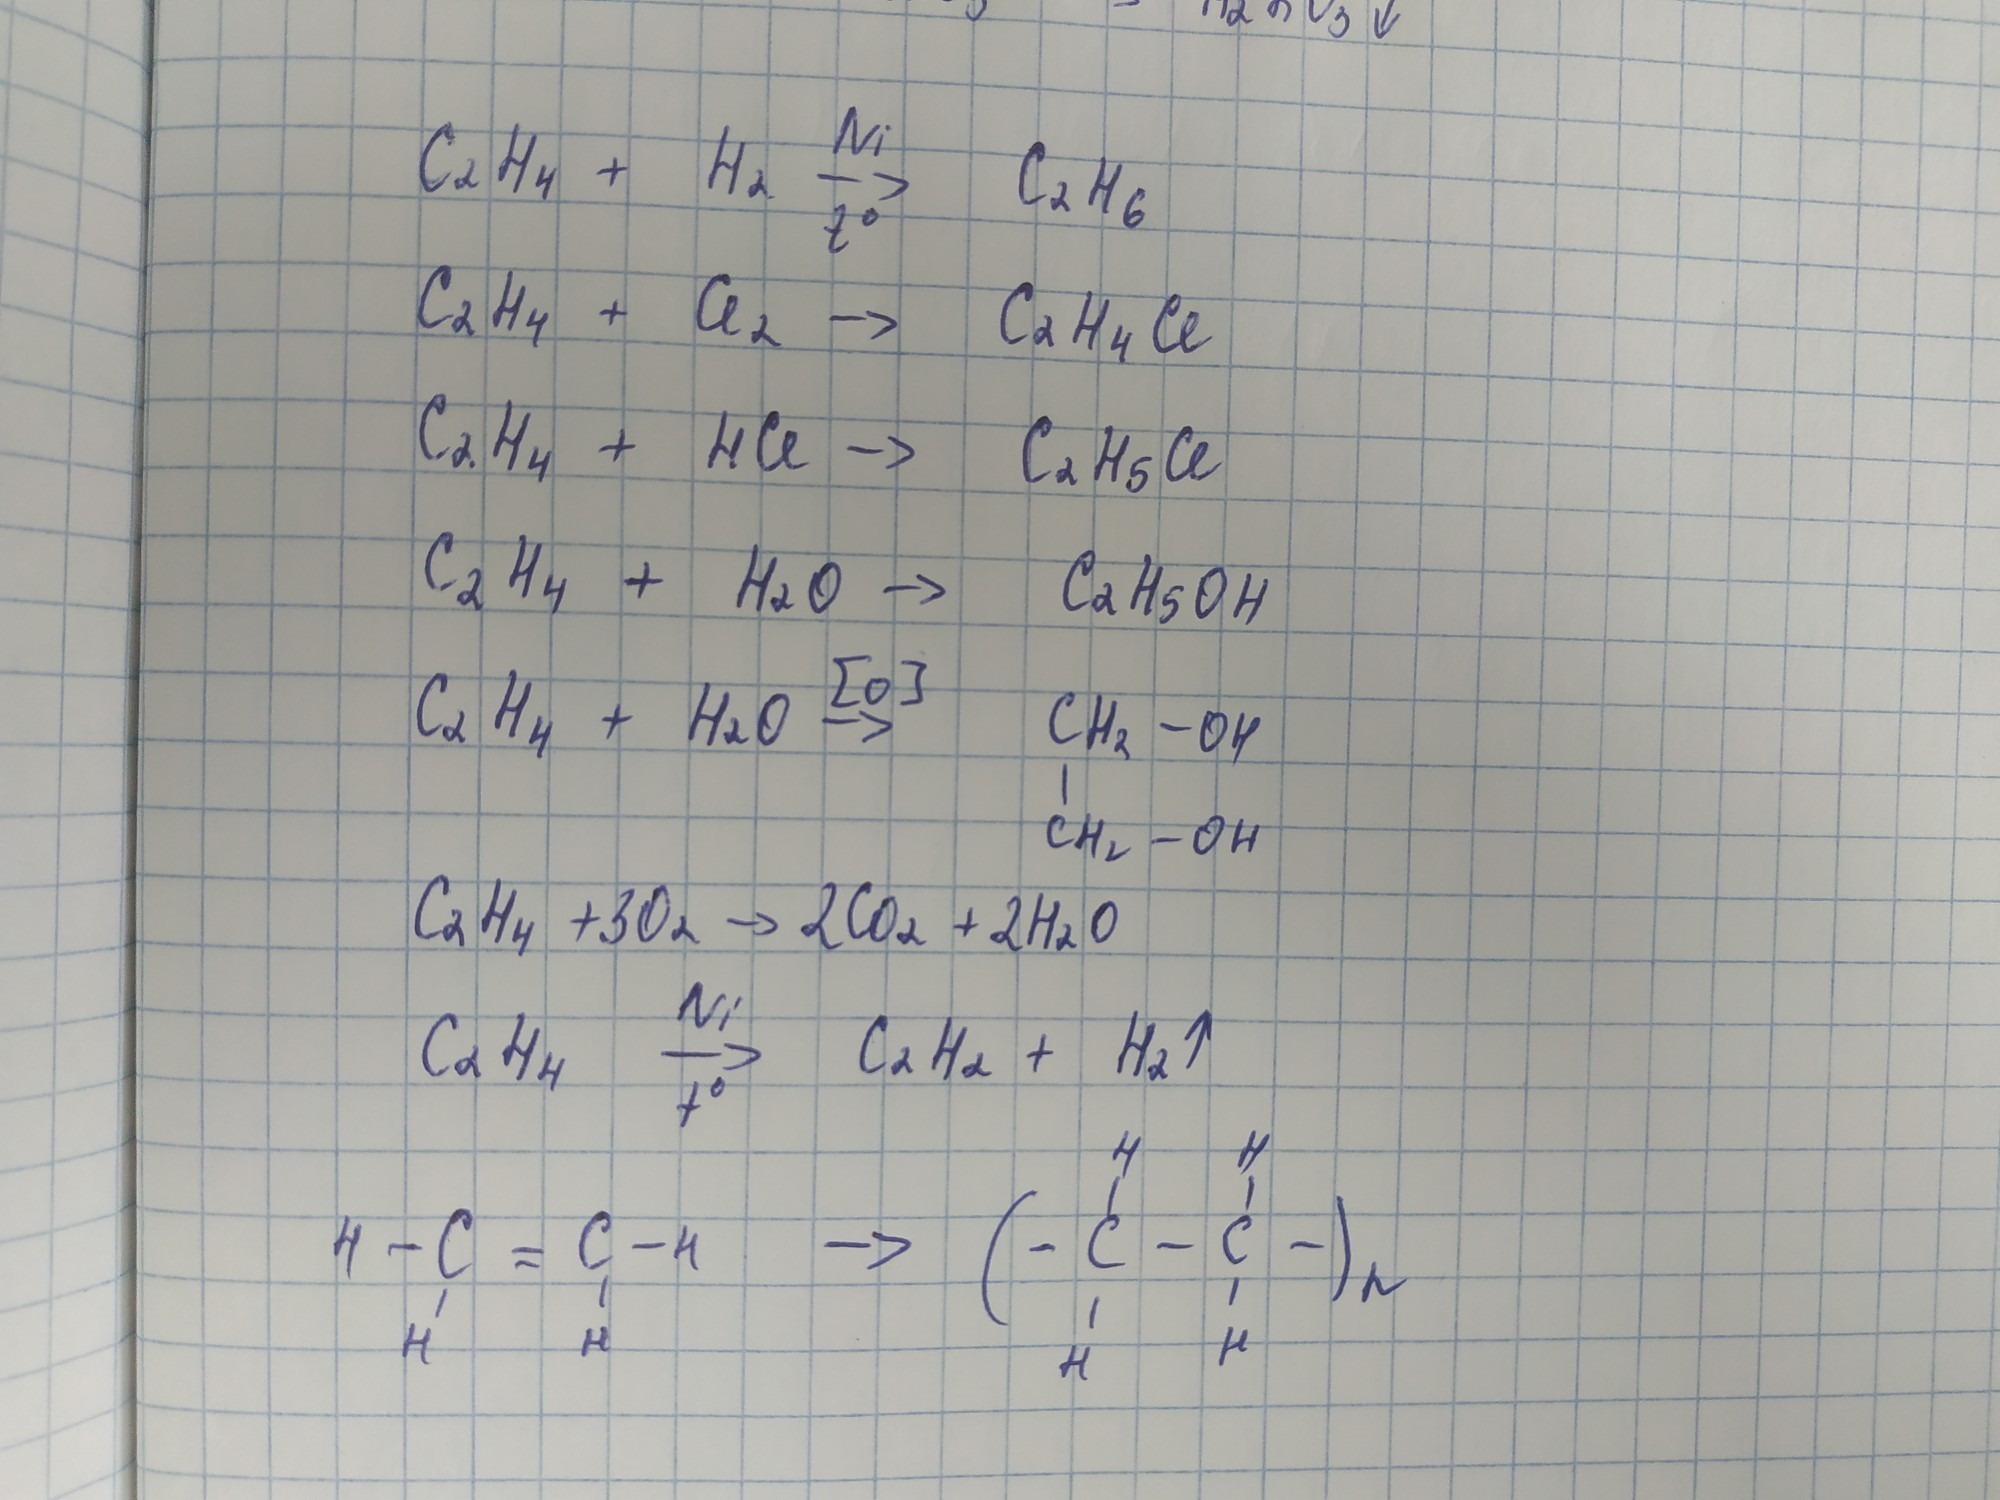 H₂SiO₃↓
Ni
C₂H₄ + H₂ → C₂H₆
t°
C₂H₄ + Cl₂ → C₂H₄Cl
C₂H₄ + HCl → C₂H₅Cl
C₂H₄ + H₂O → C₂H₅OH
[O]
C₂H₄ + H₂O → CH₂ – OH
|
CH₂ – OH
C₂H₄ + 3O₂ → 2CO₂ + 2H₂O
Ni
C₂H₄ → C₂H₂ + H₂↑
t°
H H
| |
H – C = C – H → ( – C – C – )n
| | | |
H H H H